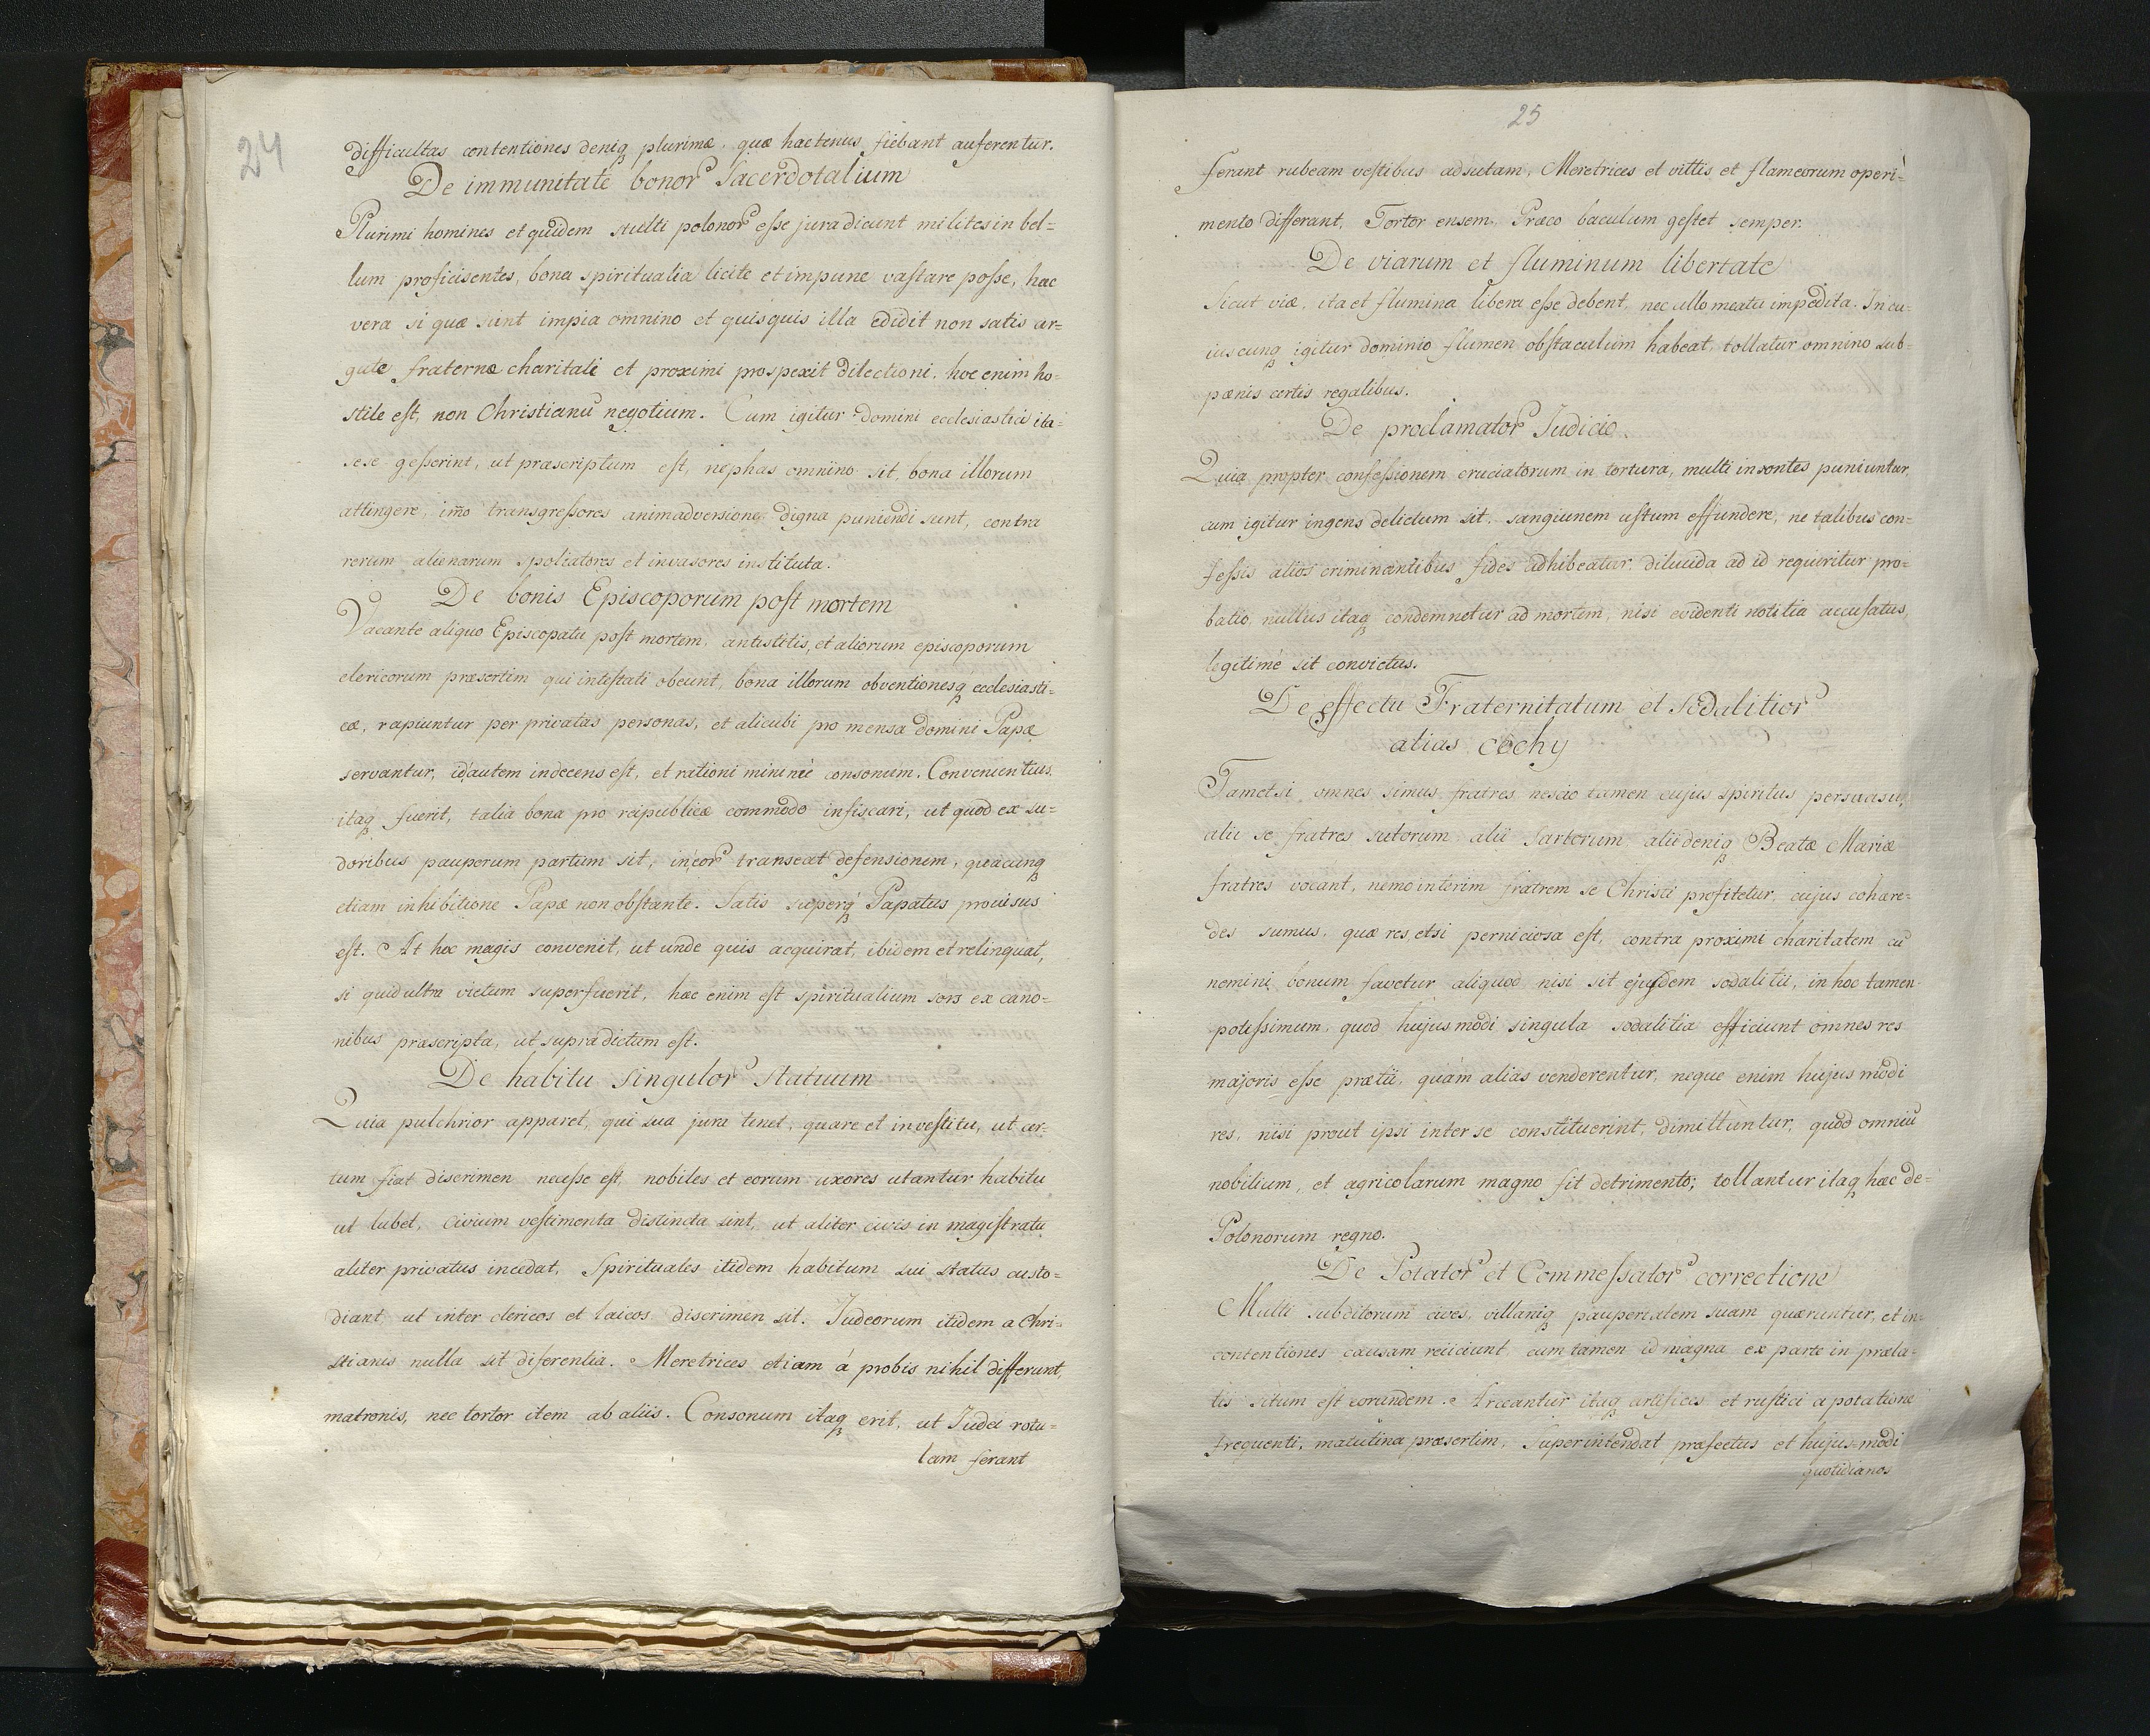 24
difficultas contentiones deniqꝫ plurimæ, quæ hactenus fiebant auferentur.
De immunitate bonorꝰ Sacerdotalium
Plurimi homines et quidem stulti polonorꝰ esse jura dicunt milites in bel=
lum proficisentes, bona spiritualia licite et impune vastare posse, hac
vera si quæ sunt impia omnino et quisquis illa edidit non satis ar=
gute fraternæ charitati et proximi prospexit dilectioni, hoc enim ho=
stile est, non Christianū negotium. Cum igitur domini ecclesiastici ita
sese gesserint, ut præscriptum est, nephas omnino sit, bona illorum
attingere, imo transgressores animadversione digna puniendi sunt, contra
rerum alienarum spoliatores et invasores instituta.
De bonis Episcoporum post mortem
Vacante aliquo Episcopatu post mortem, antistitis, et aliorum episcoporum
clericorum præsertim qui intestati obeunt, bona illorum obventionesqꝫ ecclesiasti=
cæ, rapiuntur per privatas personas, et alicubi pro mensa domini Papæ
servantur, id autem indecens est, et rationi minime consonum. Convenientius
itaqꝫ fuerit, talia bona pro reipublicæ commodo infiscari, ut quod ex su=
doribus pauperum partum sit, in eorꝰ transeat defensionem, quacunqꝫ
etiam inhibitione Papæ non obstante. Satis superqꝫ Papatus provisus
est. At hoc magis convenit, ut unde quis acquirat, ibidem et relinquat,
si quid ultra victum superfuerit, hæc enim est spiritualium sors ex cano=
nibus præscripta, ut supra dictum est.
De habitu Singulorꝰ statuum
Quia pulchrior apparet, qui sua jura tenet, quare et in vestitu, ut cer=
tum fiat discrimen necesse est, nobiles et eorum uxores utantur habitu
ut lubet, civium vestimenta distincta sint, ut aliter civis in magistratu
aliter privatus incedat, Spirituales itidem habitum sui status custo=
diant, ut inter clericos et laicos discrimen sit. Iudeorum itidem a Chri=
stianis nulla sit diferentia. Meretrices etiam á probis nihil differunt,
matronis, nec tortor item ab aliis. Consonum itaqꝫ erit, ut Iudei rotu=
lam ferant
25
ferant rubeam vestibus adsutam, Meretrices et vittis et flameorum operi=
mento differant, Tortor ensem, Præco baculum gestet semper.
De viarum et fluminum libertate
Sicut viæ, ita et flumina libera esse debent, nec ullo meatu impedita. In cu=
iuscunqꝫ igitur dominio flumen obstaculum habeat, tollatur omnino sub=
pænis certis regalibus.
De proclamatorꝰ Iudicio.
Quia propter confessionem cruciatorum in tortura, multi insontes puniuntur,
cum igitur ingens delictum sit, sangiunem ustum effundere, ne talibus con=
fessis alios criminantibus fides adhibeatur, dilucida ad id requiritur pro=
batio, nullus itaqꝫ condemnetur ad mortem, nisi evidenti notitia accusatus,
legitimé sit convictus.
De effectu Fraternitatum et Sodalitiorꝰ
alias cechy
Tametsi omnes simus fratres, nescio tamen cujus spiritus persuasu,
alii se fratres sutorum, alii Sartorum, alii deniqꝫ Beatæ Mariæ
fratres vocant, nemo interim fratrem se Christi profitetur, cujus cohære=
des sumus, quæ res, etsi perniciosa est, contra proximi charitatem cū
nemini bonum favetur aliquod nisi sit ejusdem sodalitii, in hoc tamen
potissimum, quod hujusmodi singula sodalitia efficiunt omnes res
majoris esse prætii, quàm alias venderentur, neque enim hujusmodi
res, nisi prout ipsi inter se constituerint, dimittuntur, quod omniū
nobilium, et agricolarum magno fit detrimento; tollantur itaqꝫ hæc de=
Polonorum regno.
De Potatorꝰ et Commessatorꝰ correctione
Multi subditorum cives, villaniqꝫ paupertatem suam quæruntur, et in=
contentiones causam reiiciunt, cum tamen id magna ex parte in præla=
tis situm est eorundem. Arceantur itaqꝫ artifices et rustici a potatione
frequenti, matutina præsertim, Superintendat præfectus et hujusmodi
quotidianos